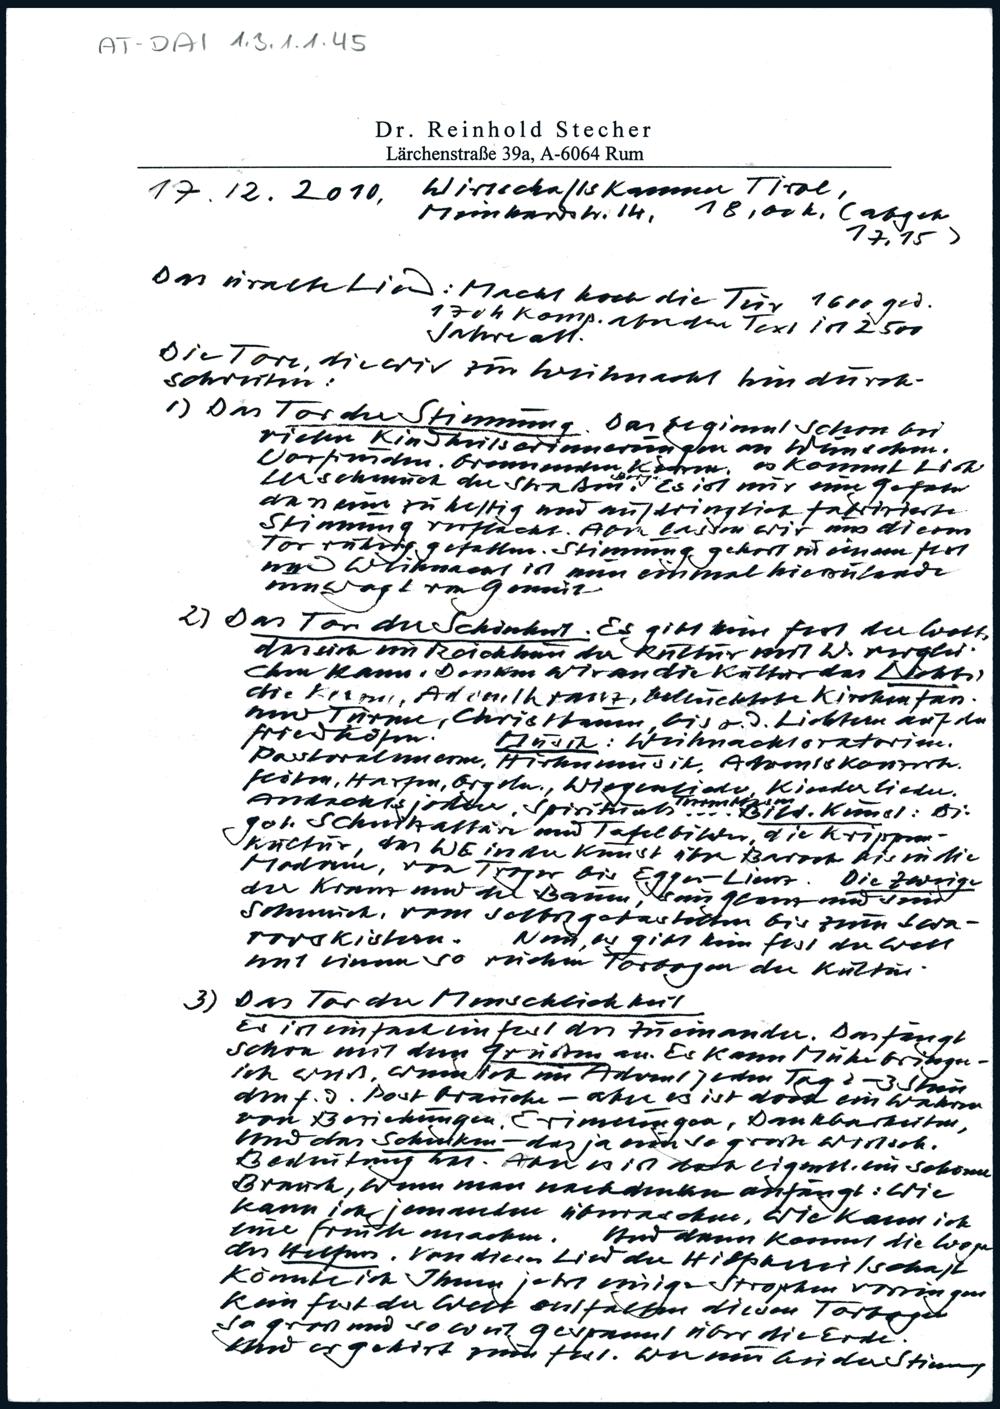 AT-DAI 1.3.1.1.45
Dr. Reinhold Stecher
Lärchenstraße 39a, A-6064 Rum
17.12.2010, Wirtschaftskammer Tirol,
Meinhardstr. 14, 18,00 h. (abgeh
17.15)
Das uralte Lied: Macht hoch die Tür 1600 ged.
1704 Komp. aber der Text ist 2500
Jahre alt.
Die Tore, die wir zur Weihnacht hindurch-
schreiten:
1) Das Tor der Stimmung. Das beginnt schon bei
vielen Kindheitserinnerungen an Wünschen.
Vorfreuden. brennenden Kerzen. es kommt Lich
terschmuck der Straßen. Es ist nur eine Gefahr
dass eine zu heftig und aufdringlich fabrizierte
Stimmung verflacht. Aber lassen wir uns dieses
Tor ruhig gefallen. Stimmung gehört zu einem Fest
und Weihnacht ist nun einmal hierzulande
umwogt von Gemüt
2) Das Tor der Schönheit. Es gibt kein Fest der Welt,
das sich im Reichtum der Kultur mit W. verglei-
chen kann. Denken wir an die Kultur des Lichts:
die Kerzen, Adventkranz, beleuchtete Kirchenfas.
und Türme, Christbaum, bis z.d. Lichtern auf den
Friedhöfen. Musik: Weihnachtsoratorien.
Pastoralmessen, Hirtenmusik, Adventskonzerte.
Flöten, Harfen, Orgeln, Wiegenlieder, Kinderlieder.
Andachtsjodler, Spirituals .... Bild. Kunst: Di
got. Schnitzaltäre und Tafelbilder, die Krippen-
kultur, das WE in der Kunst über Barock bis in die
Moderne, von Troger bis Egger-Lienz. Die Zweige
der Kranz und der Baum, sein Glanz und sein
Schmuck, vom selbstgebastelten bis zum Swa-
rovskistern. Nein, es gibt kein Fest der Welt
mit einem so reichen Torbogen der Kultur.
3) Das Tor der Menschlichkeit
Es ist einfach ein Fest des Zueinander. Das fängt
schon mit dem Grüßen an. Es kann Mühe bringen-
ich weiß, wenn ich im Advent jeden Tag 2-3 Stun
den f.d. Post brauche – aber es ist doch ein Wahren
von Beziehungen, Erinnerungen, Dankbarkeiten,
Und das Schenken – das ja eine so große wirtsch.
Bedeutung hat. Aber es ist doch eigentl. ein schöner
Brauch, wenn man nachdenken anfängt: Wie
kann ich jemanden überraschen, wie kann ich
eine Freude machen. Und dann kommt die Woge
des Helfens. Von diesem Lied der Hilfsbereitschaft
könnte ich Ihnen jetzt einige Strophen vorsingen
Kein Fest der Welt entfaltet diesen Torbogen
so groß und so weit gespannt über die Erde.
Und er gehört zum Fest. Wer nur bei der Stimmung